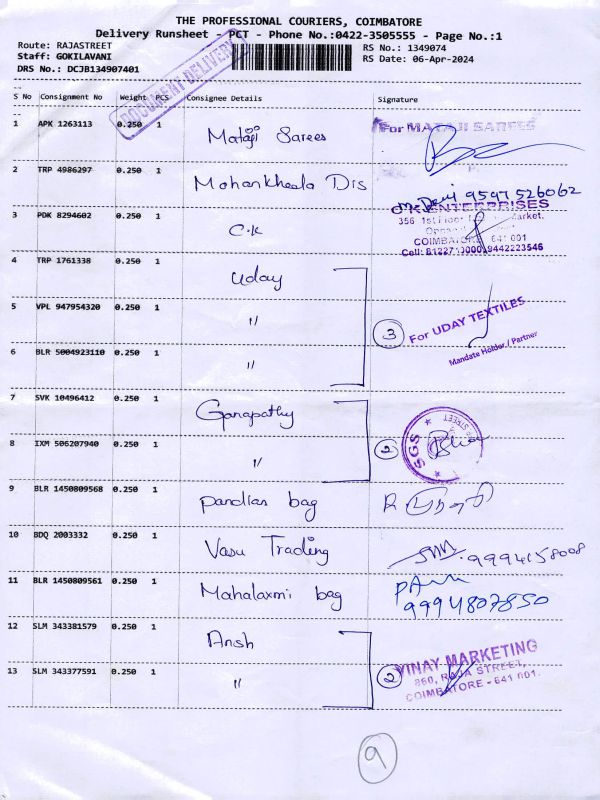 THE PROFESSIONAL COURIERS, COIMBATORE
Delivery Runsheet - PCT - Phone No.:0422-3505555 - Page No.:1
Route: RAJASTREET
RS No.: 1349074
Staff: GOKILAVANI
RS Date: 06-Apr-2024
DRS No.: DCJB134907401
DOCUMENT DELIVERY
S No Consignment No Weight PCS Consignee Details Signature
1 APK 1263113 0.250 1 Mataji Sarees For MATAJI SAREES
2 TRP 4986297 0.250 1 Mohankheda Dis M. Devi 9597526062
3 PDK 8294602 0.250 1 C.K
C K ENTERPRISES
356 1st Floor Market.
COIMBATORE 641 001
9442223546
4 TRP 1761338 0.250 1 Uday
5 VPL 947954320 0.250 1 "
3 For UDAY TEXTILES
Mandate Holder / Partner
6 BLR 5004923110 0.250 1 "
7 SVK 10496412 0.250 1 Ganapathy
8 IXM 506207940 0.250 1 " 2 SGS
9 BLR 1450809568 0.250 1 pandian bag
10 BDQ 2003332 0.250 1 Vasu Trading 9994158008
11 BLR 1450809561 0.250 1 Mahalaxmi bag
9994807850
12 SLM 343381579 0.250 1 Ansh
13 SLM 343377591 0.250 1 " 2
VINAY MARKETING
860, RAJA STREET,
COIMBATORE - 641 001.
9